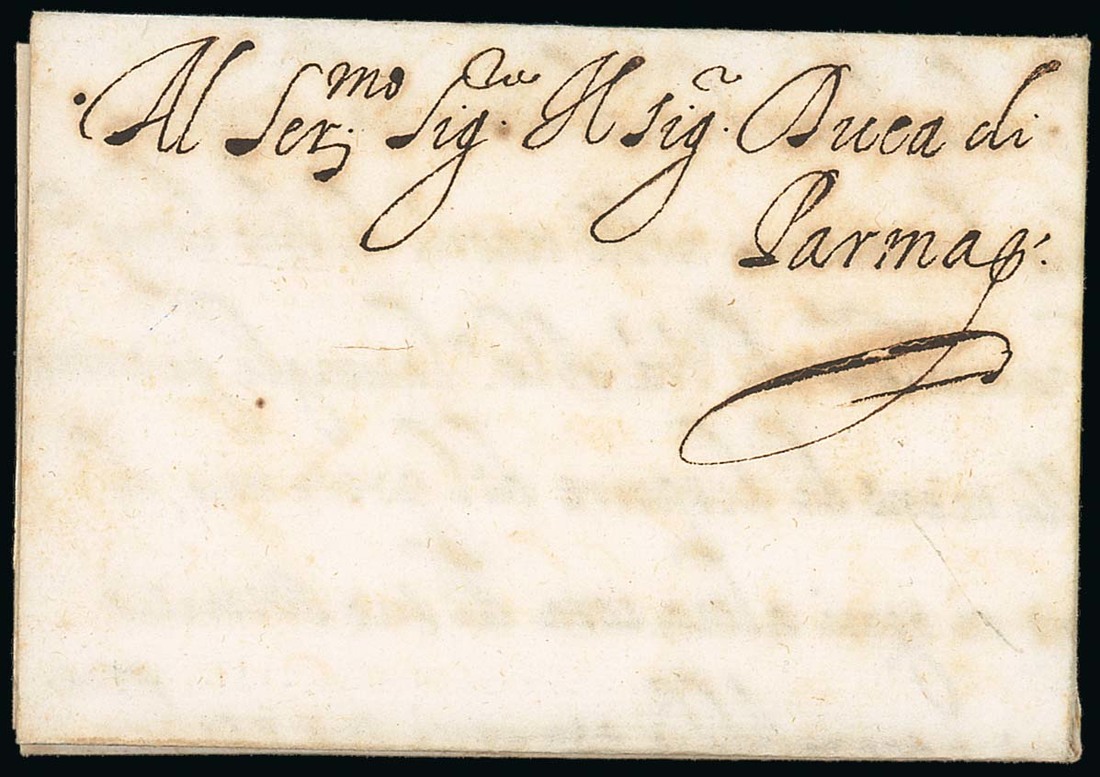 Al Ser.mo Sig.re Il Sig.r Duca di
Parma